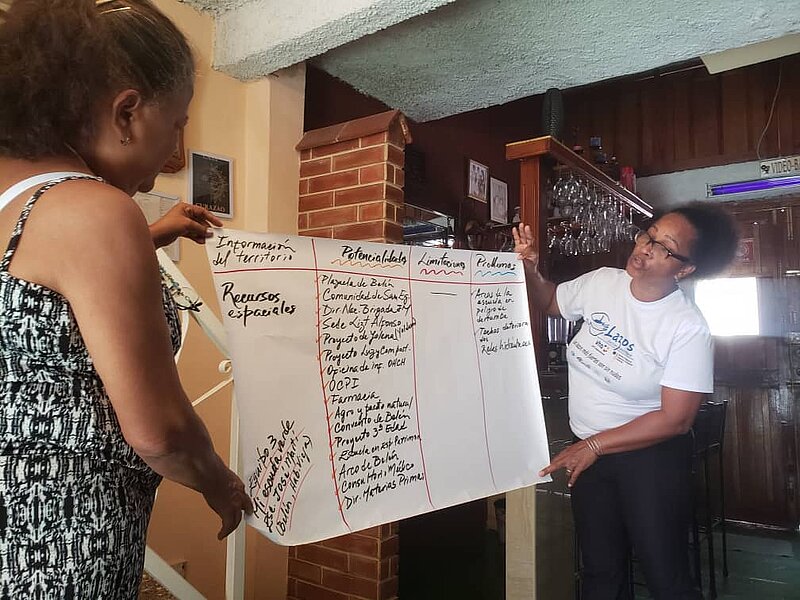 Información
del territorio
Potencialidades
Limitaciones
Problemas
Recursos
espaciales
Plazuela de Belén
Comunidad de San
Dir. Nac. Brigada
Sede Lizt Alfonso
Proyecto de
Proyecto Luz y
Oficina de inf. OHCH
OCPI
Farmacia
Agro y patio natural
Convento de Belén
Proyecto 3ª Edad
Escuela
Arco de Belén
Consultorio Médico
Dir. Materias Primas
Arcos de la
escuela en
peligro de
derrumbe
Redes hidráulicas
Equipo 3
Lazos
VIDEO-B